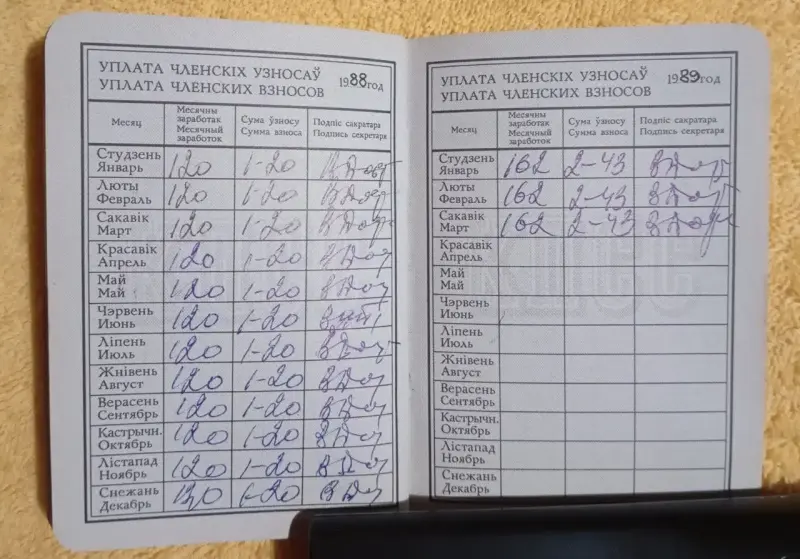 УПЛАТА ЧЛЕНСКІХ УЗНОСАЎ 1988 год
УПЛАТА ЧЛЕНСКИХ ВЗНОСОВ
Месяц
Месячны заработак
Месячный заработок
Сума ўзносу
Сумма взноса
Подпіс сакратара
Подпись секретаря
Студзень
Январь 120 1-20
Люты
Февраль 120 1-20
Сакавік
Март 120 1-20
Красавік
Апрель 120 1-20
Май
Май 120 1-20
Чэрвень
Июнь 120 1-20
Ліпень
Июль 120 1-20
Жнівень
Август 120 1-20
Верасень
Сентябрь 120 1-20
Кастрычн.
Октябрь 120 1-20
Лістапад
Ноябрь 120 1-20
Снежань
Декабрь 120 1-20
УПЛАТА ЧЛЕНСКІХ УЗНОСАЎ 1989 год
УПЛАТА ЧЛЕНСКИХ ВЗНОСОВ
Месяц
Месячны заработак
Месячный заработок
Сума ўзносу
Сумма взноса
Подпіс сакратара
Подпись секретаря
Студзень
Январь 162 2-43
Люты
Февраль 162 2-43
Сакавік
Март 162 2-43
Красавік
Апрель
Май
Май
Чэрвень
Июнь
Ліпень
Июль
Жнівень
Август
Верасень
Сентябрь
Кастрычн.
Октябрь
Лістапад
Ноябрь
Снежань
Декабрь
КПСС